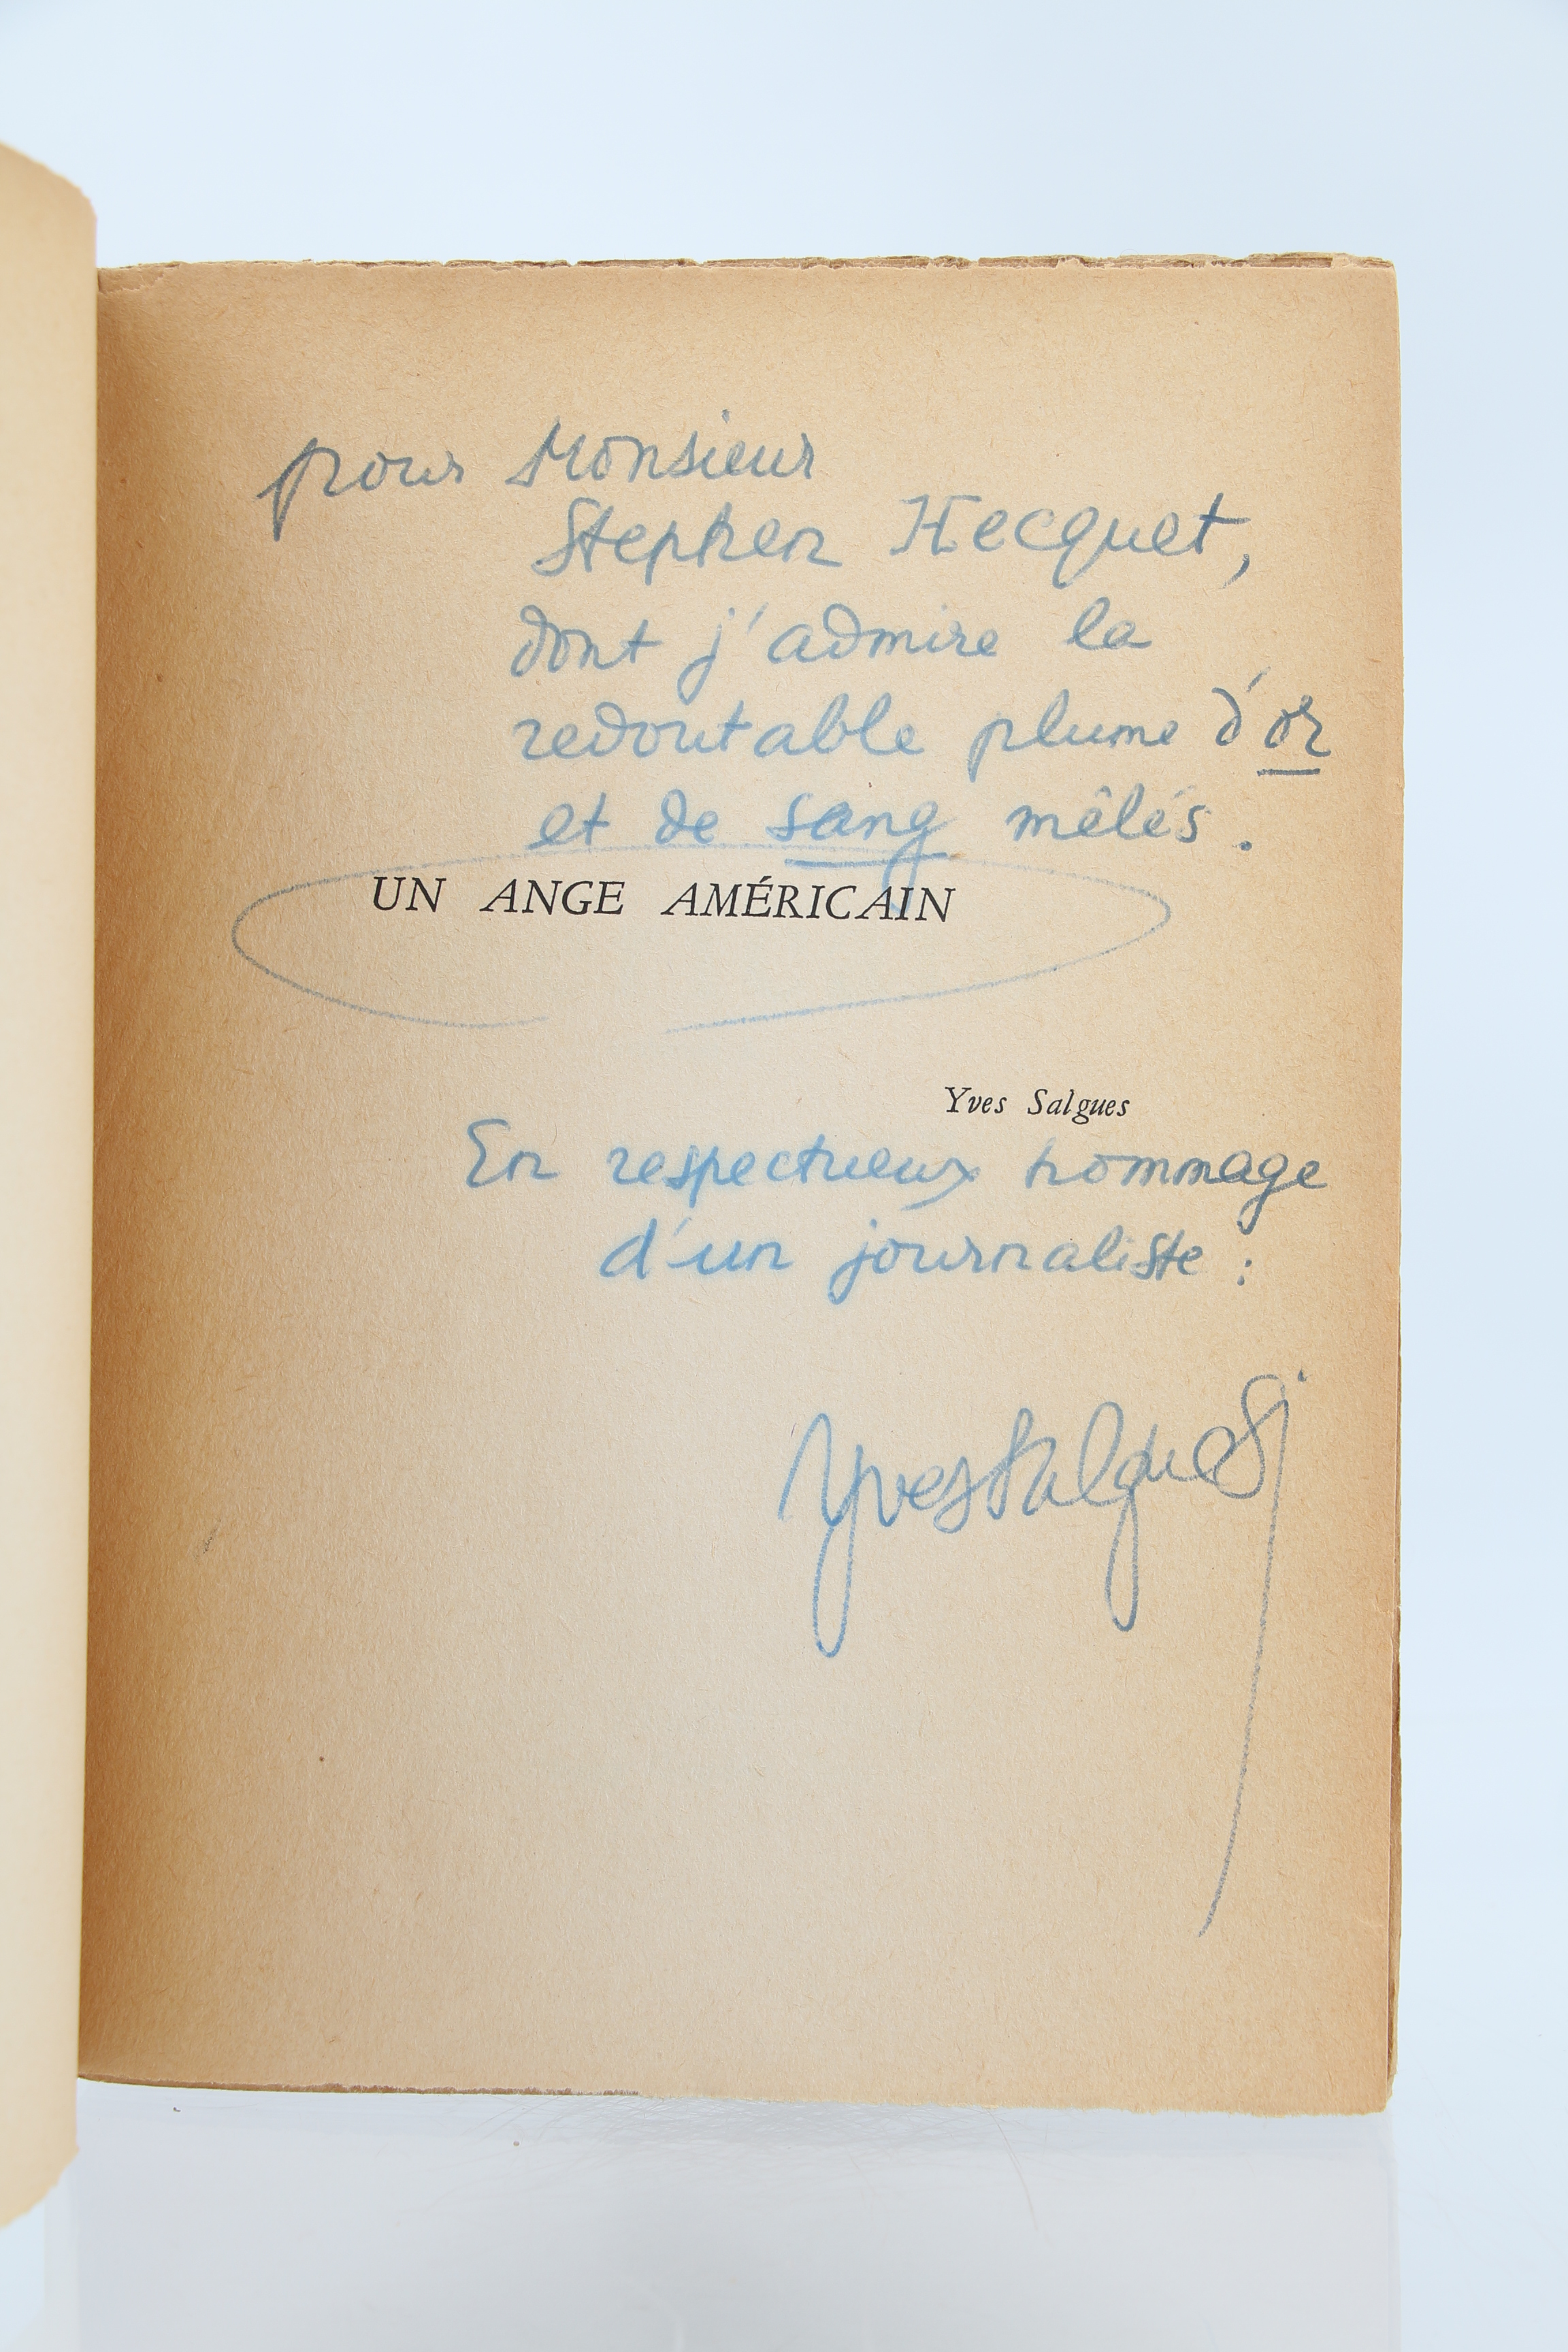 pour Monsieur
Stephen Hecquet,
dont j'admire la
redoutable plume d'or
et de sang mêlés.
UN ANGE AMÉRICAIN
Yves Salgues
En respectueux hommage
d'un journaliste :
Yves Salgues